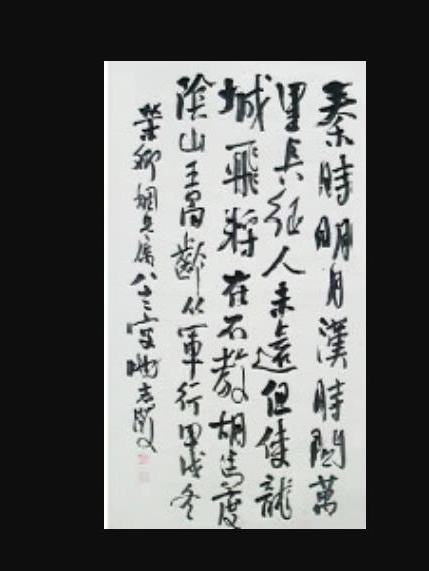 秦時明月漢時關萬
里長征人未還但使龍
城飛將在不教胡馬度
陰山王昌齡从軍行甲戌冬
榮卿兄屬八十三叟